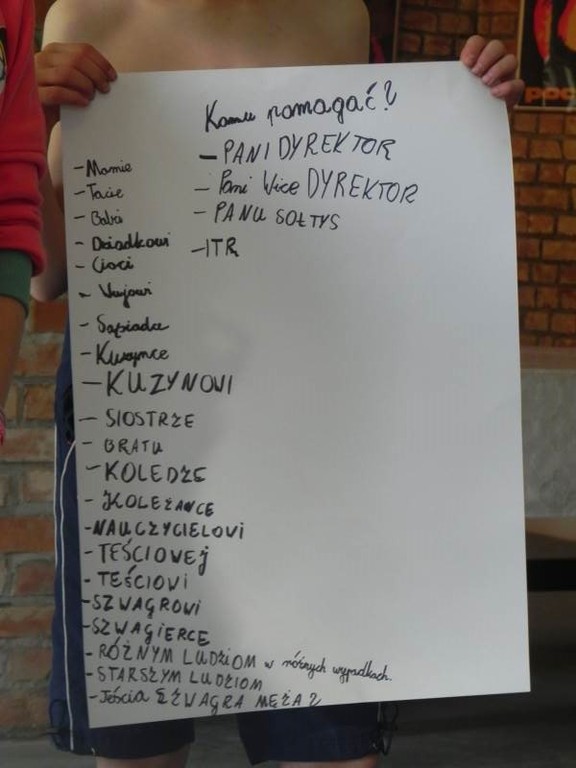 Komu pomagać?
- Mamie
- Tacie
- Babci
- Dziadkowi
- Cioci
- Wujowi
- Sąsiadce
- Kuzynce
- KUZYNOWI
- SIOSTRZE
- BRATU
- KOLEDZE
- KOLEŻANCE
- NAUCZYCIELOWI
- TEŚCIOWEJ
- TEŚCIOWI
- SZWAGROWI
- SZWAGIERCE
- RÓŻNYM LUDZIOM w różnych wypadkach.
- STARSZYM LUDZIOM
- Teścia SZWAGRA MĘŻA?
- PANI DYREKTOR
- Pani Vice DYREKTOR
- PANU SOŁTYS
- ITR